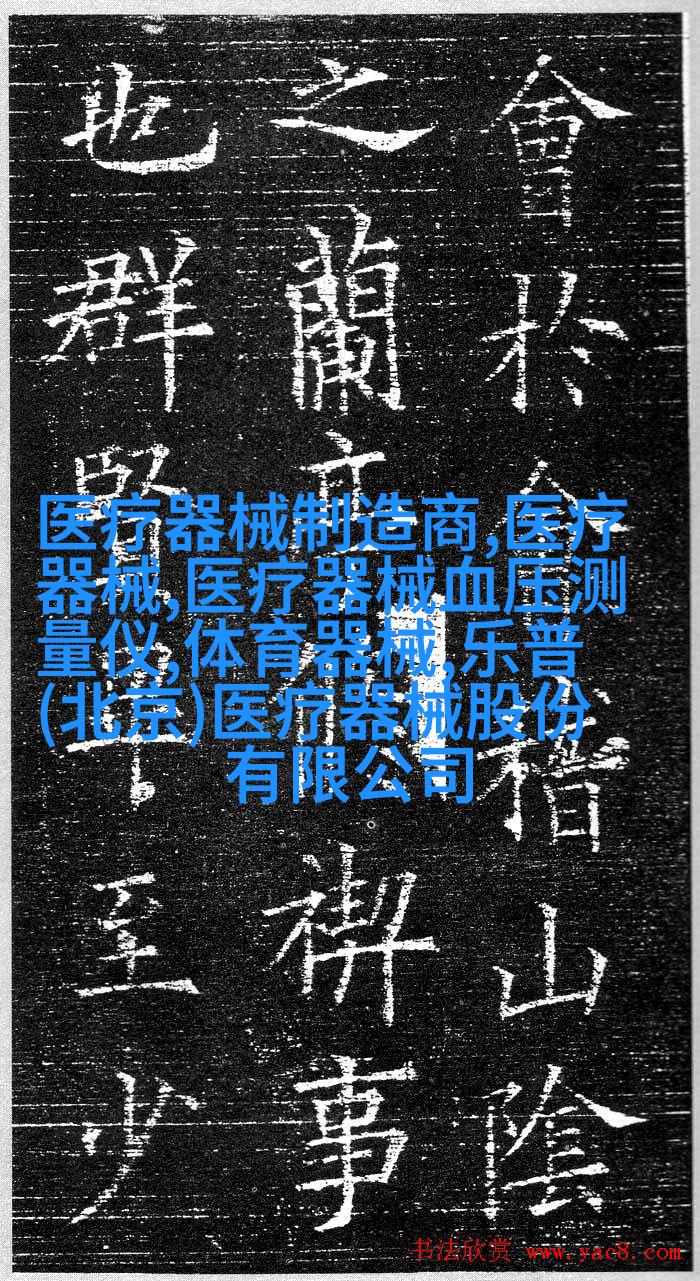 會於會稽山陰
之蘭亭禊事
也群賢畢至少
医疗器械制造商,医疗
器械,医疗器械血压测
量仪,体育器械,乐普
(北京)医疗器械股份
有限公司
书法欣赏 www.yac8.com